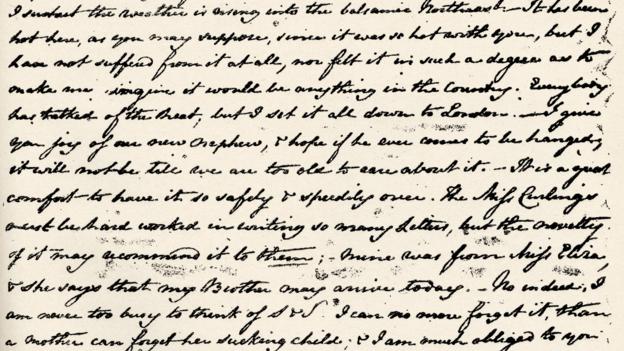 I suspect the weather is rising into the balsamic Northeast. - It has been
hot here, as you may suppose, since it was so hot with you, but I
have not suffered from it at all, nor felt it in such a degree as to
make me imagine it would be anything in the Country. Everybody
has talked of the heat, but I set it all down to London. - I give
you joy of our new nephew, & hope if he ever comes to be hanged,
it will not be till we are too old to care about it. - It is a great
comfort to have it so safely & speedily over. The Miss Curlings
must be hard worked in writing so many Letters, but the novelty
of it may recommend it to them; - mine was from Miss Eliza,
& she says that my Brother may arrive today. - No indeed, I
am never too busy to think of S & S. I can no more forget it, than
a mother can forget her sucking child; & I am much obliged to you